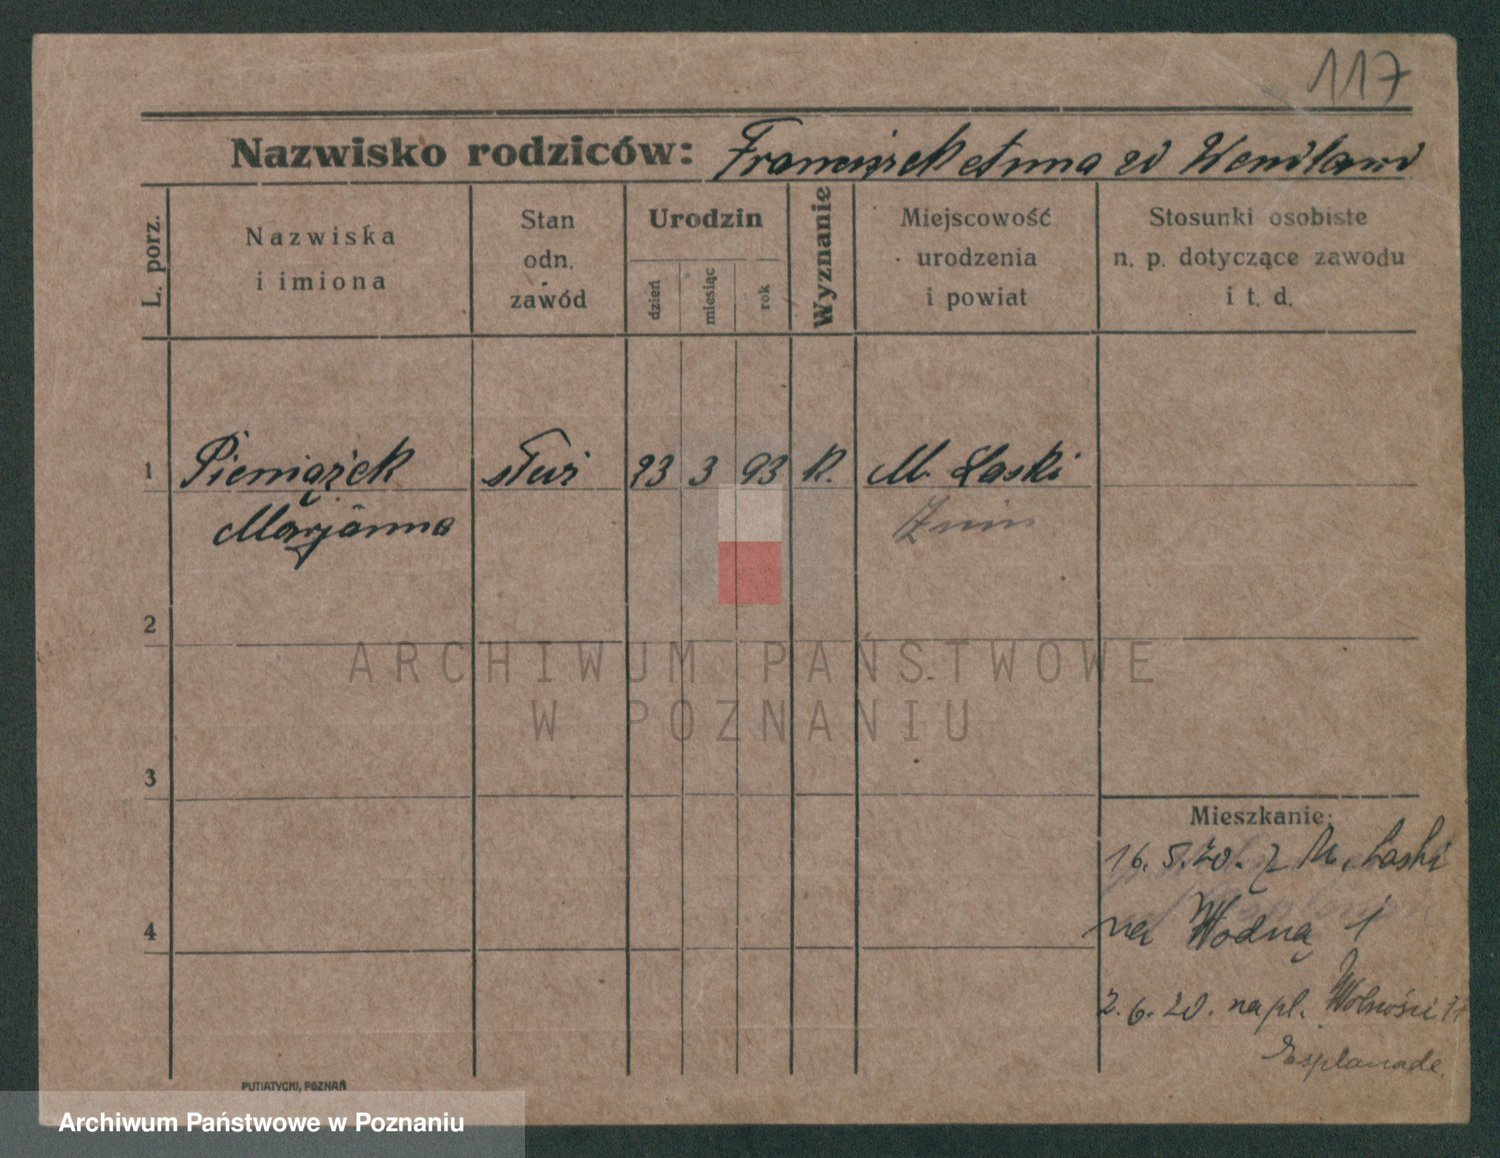 117
Nazwisko rodziców: Franciszek Anna zd
L. porz.
Nazwiska
i imiona
Stan
odn.
zawód
Urodzin
dzień
miesiąc
rok
Wyznanie
Miejscowość
urodzenia
i powiat
Stosunki osobiste
n. p. dotyczące zawodu
i t. d.
1 Pieniążek służ 23 3 93 K. M. Łaski
Marjanna Żnin
2
ARCHIWUM PAŃSTWOWE
W POZNANIU
3
Mieszkanie:
16. 5. 20. z M. Łaski
4 na Wodną 1
2. 6. 20. na pl. Wolności 11
Esplanade.
PUTIATYCKI, POZNAŃ
Archiwum Państwowe w Poznaniu